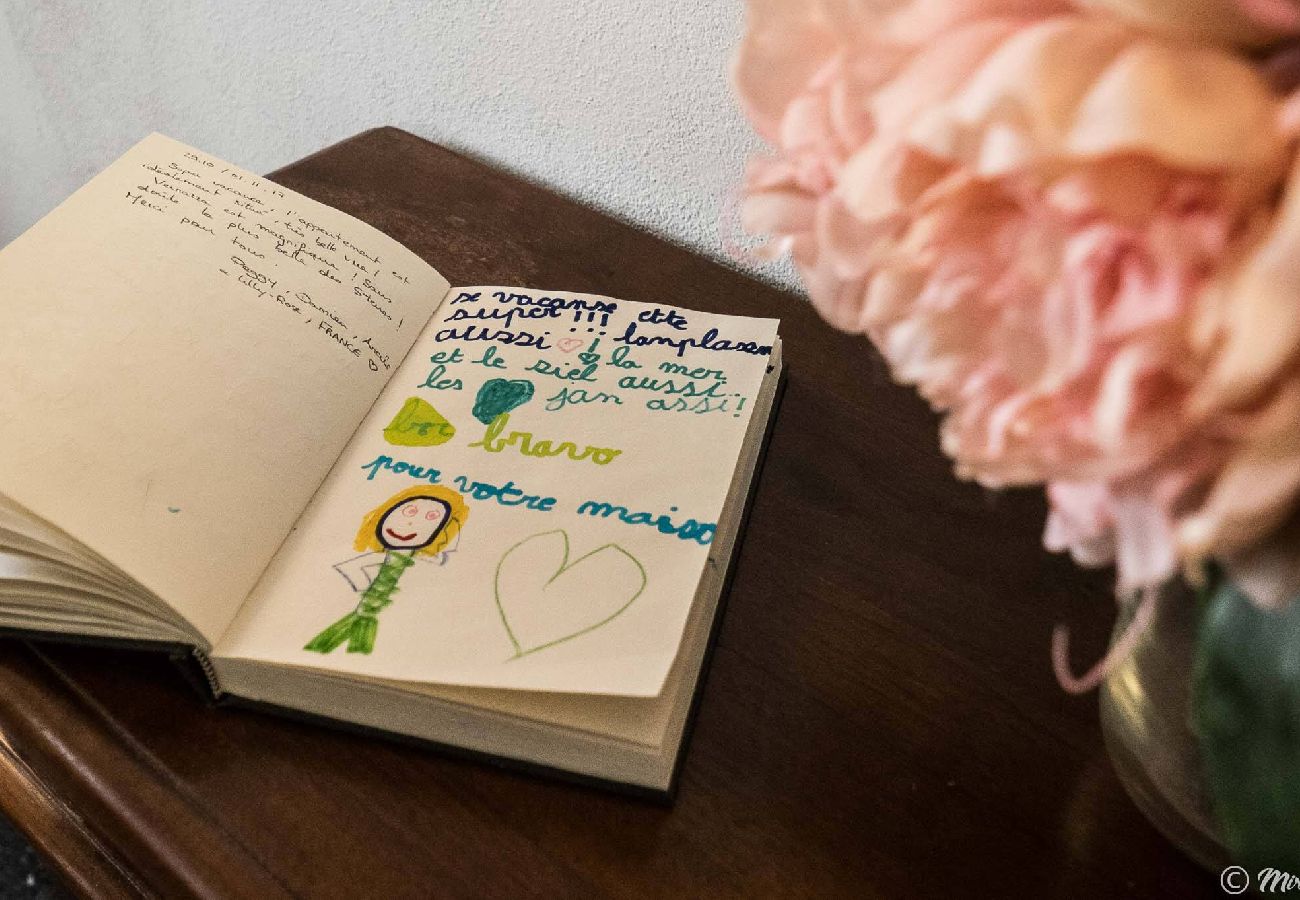 29.10 / 01.11.19
Super vacances, l'appartement est
idéalement situé, très belle vue !
Vernazza est magnifique ! Sans
doute la plus belle des 5 terres !
Merci pour tout,
Peggy, Damien,
- Lilly-Rose, FRANCE ♡
se vacanse ette
super !!!
aussi ♡ ¡ lanplasem
et le siel aussi.. la mer
les jan assi!
bor bravo
pour votre maiso
© Mir